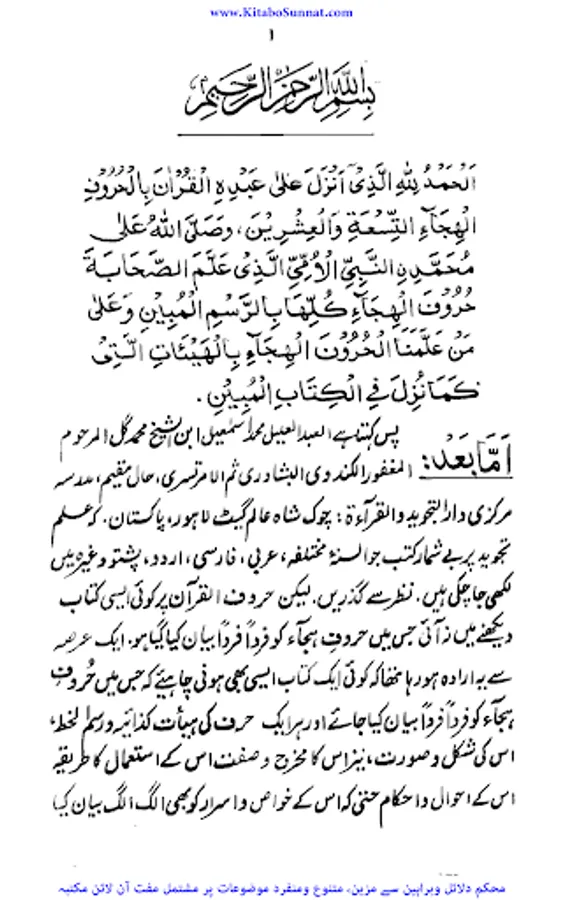 www.KitaboSunnat.com
۱
بِسْمِ اللهِ الرَّحْمٰنِ الرَّحِيْمِ
اَلْحَمْدُ لِلّٰهِ الَّذِیْ اَنْزَلَ عَلٰی عَبْدِہِ الْقُرْاٰنَ بِالْحُرُوْفِ
الْهِجَآءِ التِّسْعَةِ وَالْعِشْرِیْنَ، وَصَلَّی اللهُ عَلٰی
مُحَمَّدِنِ النَّبِیِّ الْاُمِّیِّ الَّذِیْ عَلَّمَ الصَّحَابَةَ
حُرُوْفَ الْهِجَآءِ كُلِّهَا بِالرَّسْمِ الْمُبِیْنِ وَعَلٰی
مَنْ عَلَّمَنَا الْحُرُوْنَ الْهِجَآءِ بِالْهَیْئَاتِ الَّتِیْ
كَمَا نُزِلَ فِی الْكِتَابِ الْمُبِیْنِ .
اَمَّا بَعْدُ: پس کہتا ہے العبد العلیل محمد اسمٰعیل ابن الشیخ محمد گل المرحوم
المغفور الکندوی البشاوری ثم الامرتسری، حال مقیم، مدرسہ
مرکزی دار التجوید والقرآءۃ: چوک شاہ عالم گیٹ لاہور، پاکستان۔ کہ علم
تجوید پر بے شمار کتب جو السنۂ مختلفہ، عربی، فارسی، اردو، پشتو وغیرہ میں
لکھی جا چکی ہیں۔ نظر سے گذریں۔ لیکن حروف القرآن پر کوئی ایسی کتاب
دیکھنے میں نہ آئی جس میں حروفِ ہجآء کو فرداً فرداً بیان کیا گیا ہو۔ ایک عرصہ
سے یہ ارادہ ہو رہا تھا کہ کوئی ایک کتاب ایسی بھی ہونی چاہیئے کہ جس میں حُروفِ
ہجآء کو فرداً فرداً بیان کیا جائے اور ہر ایک حرف کی ہیأت کذائیہ ورسم الخط،
اس کی شکل وصورت، نیز اس کا مخرج وصفت اس کے استعمال کا طریقہ
اس کے احوال واحکام حتیٰ کہ اس کے خواص واسرار کو بھی الگ الگ بیان کیا
محکم دلائل وبراہین سے مزین، متنوع ومنفرد موضوعات پر مشتمل مفت آن لائن مکتبہ